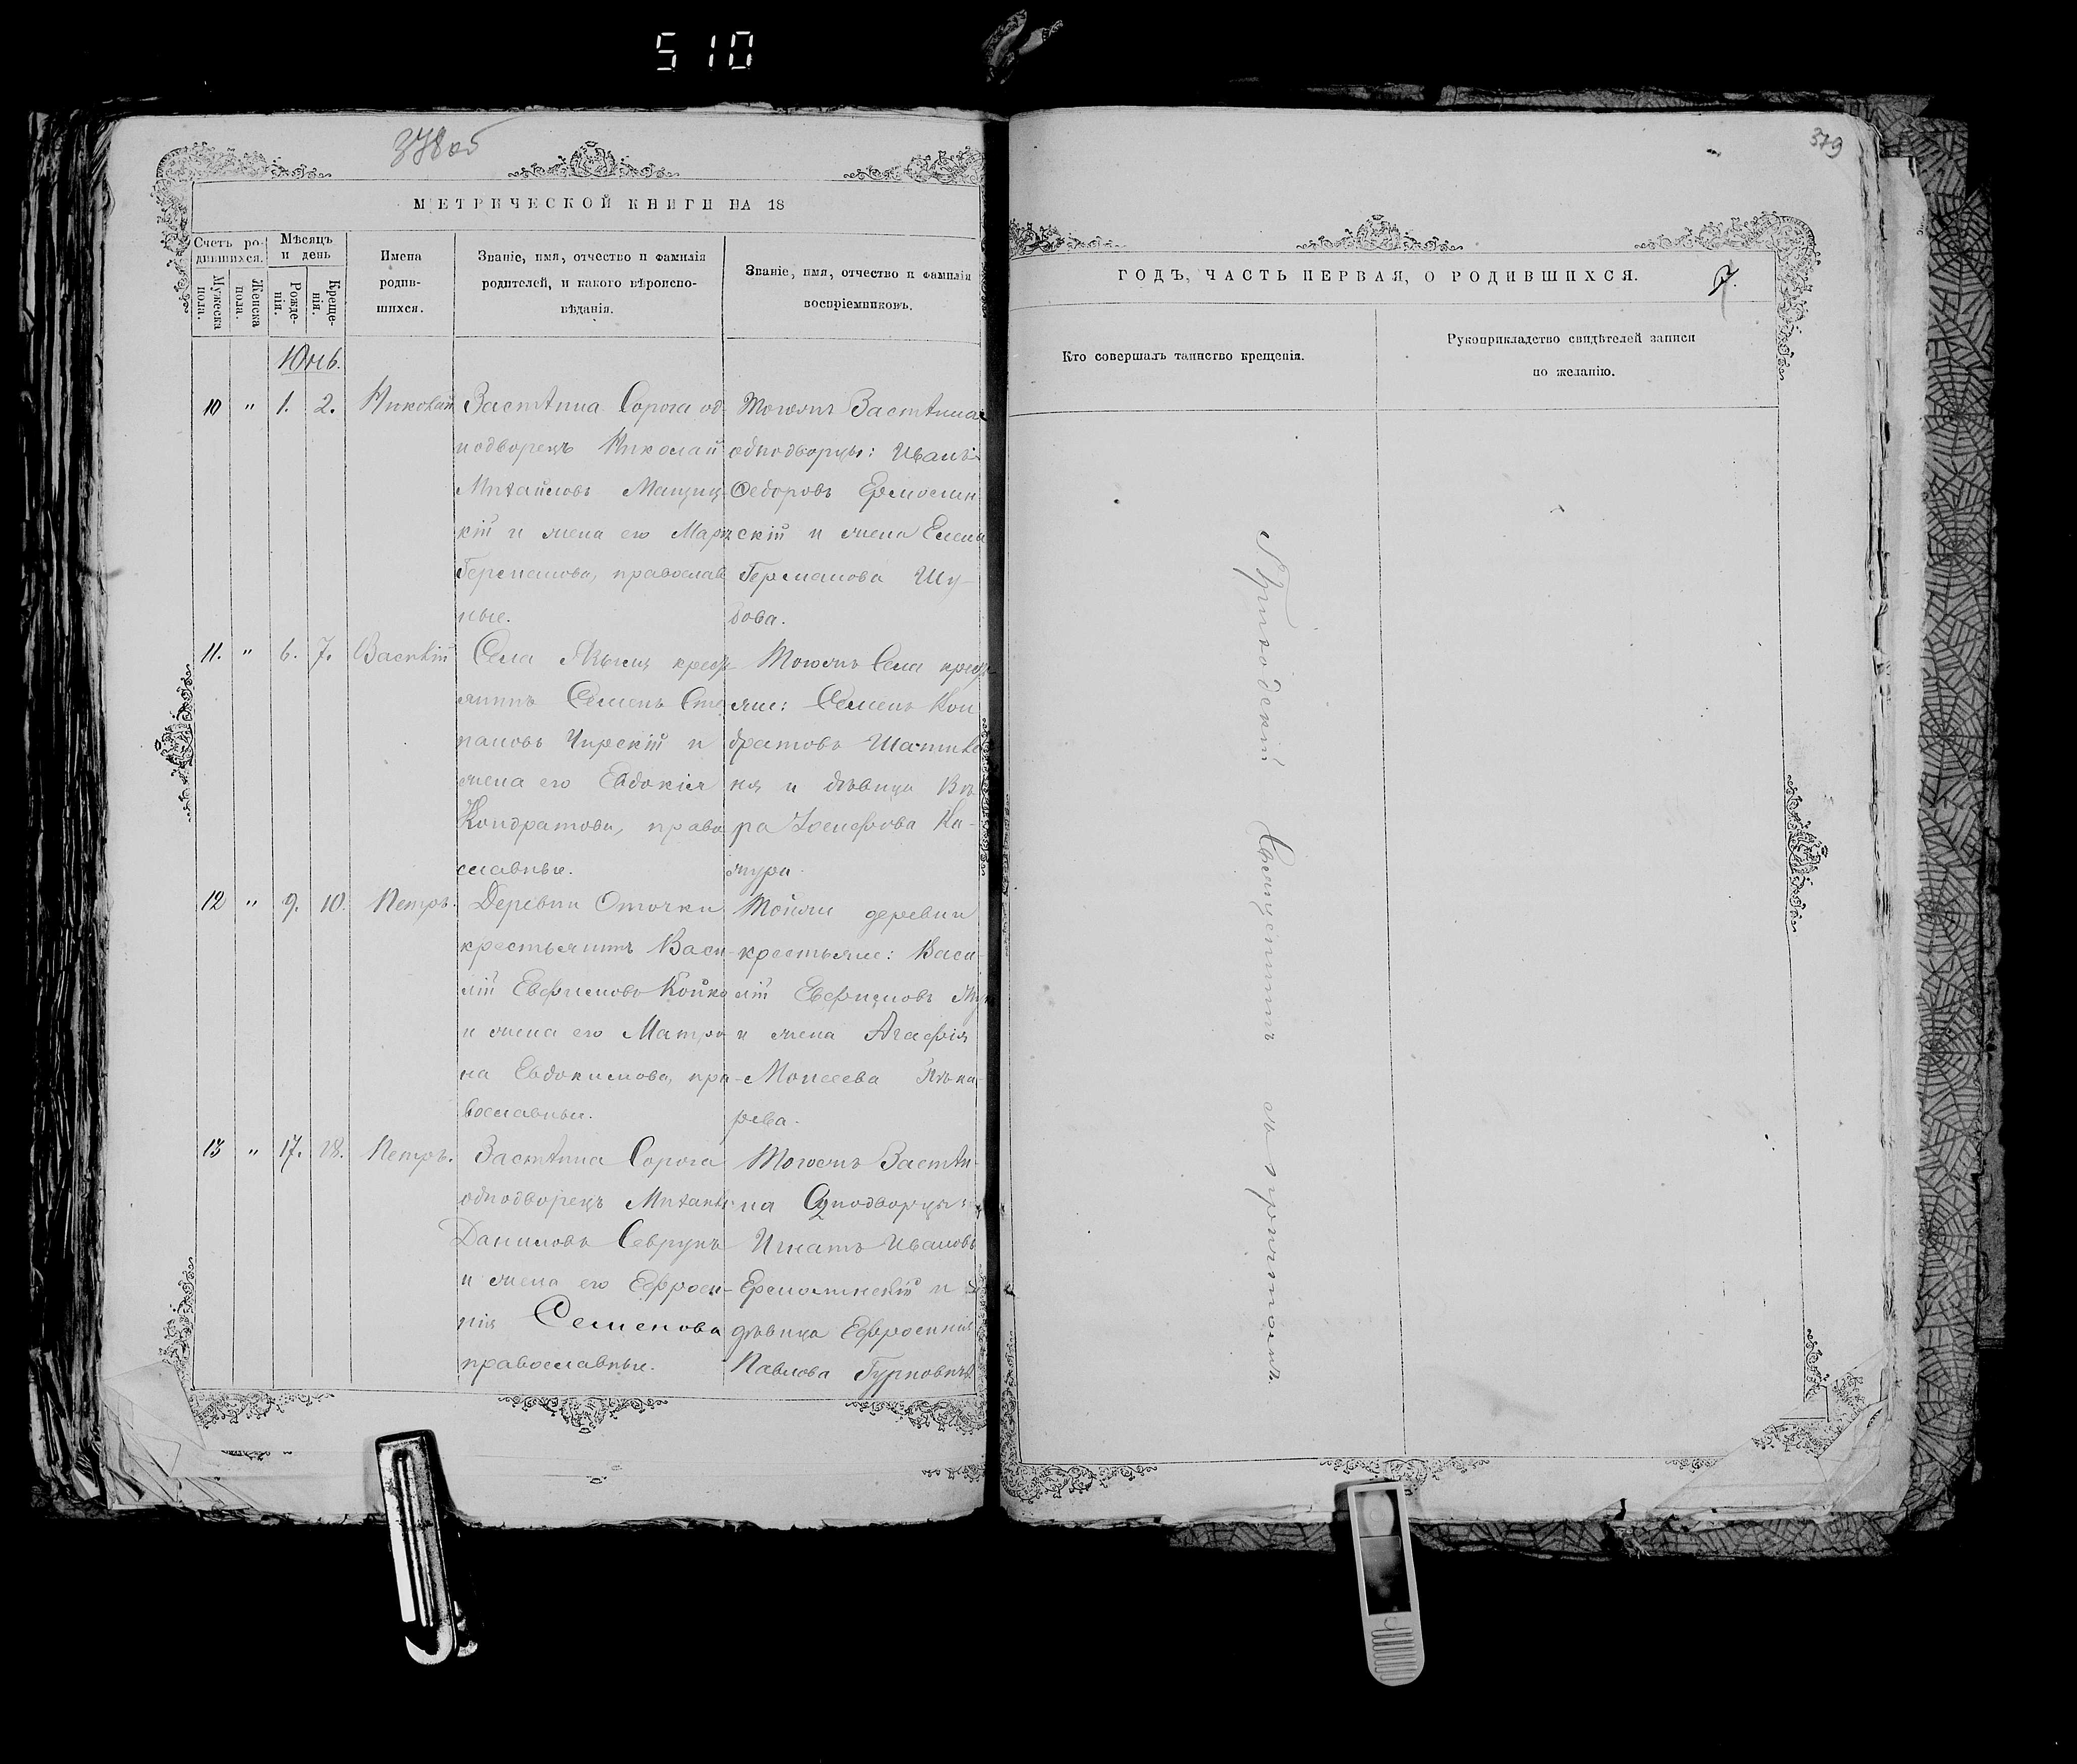 510
378 об
МЕТРИЧЕСКОЙ КНИГИ НА 18
Счетъ родившихся.
Мужеска пола.
Женска пола.
Мѣсяцъ и день
Рожденія.
Крещенія.
Имена родившихся.
Званіе, имя, отчество и фамилія
родителей, и какого вѣроиспо-
вѣданія.
Званіе, имя, отчество и фамилія
воспріемниковъ.
Юнь.
10 " 1. 2. Николай
Застѣнка Сорога од
нодворецъ Николай
Михайловъ
кій и жена его Марія
Германова, православ
ные.
Тогожъ Застѣнка
однодворцы: Иванъ
Федоровъ Ермолин
скій и жена Елена
Германова Шу-
дова.
11. " 6. 7. Василій
Села крестья
нинъ Семенъ Сте
пановъ Чирскій и
жена его Евдокія
Кондратова, право
славные.
Тогожъ Села крестья
яне: Семенъ Кон
дратовъ
и дѣвица Вѣ
ра Ка-
12 " 9. 10. Петръ.
Деревни Оточки
крестьянинъ Васи-
лій Евфимовъ Койко
и жена его Матро
на Евдокимова, пра-
вославные.
Тойжи деревни
крестьяне: Васи-
лій Евфимовъ
и жена Агафія
Моисеева
рева.
13 " 17. 18. Петръ.
Застѣнка Сорога
однодворецъ Михаилъ
Даниловъ Севрукъ
и жена его Ефроси-
нія Семенова
православные.
Тогожъ Застѣн-
ка Однодворцы:
Игнатъ Ивановъ
Ермолинскій и
дѣвица Ефросинія
Павлова Гурновичъ
379
ГОДЪ, ЧАСТЬ ПЕРВАЯ, О РОДИВШИХСЯ.
7.
Кто совершалъ таинство крещенія.
Рукоприкладство свидѣтелей записи
по желанію.
Приходскій Священникъ съ причтомъ.